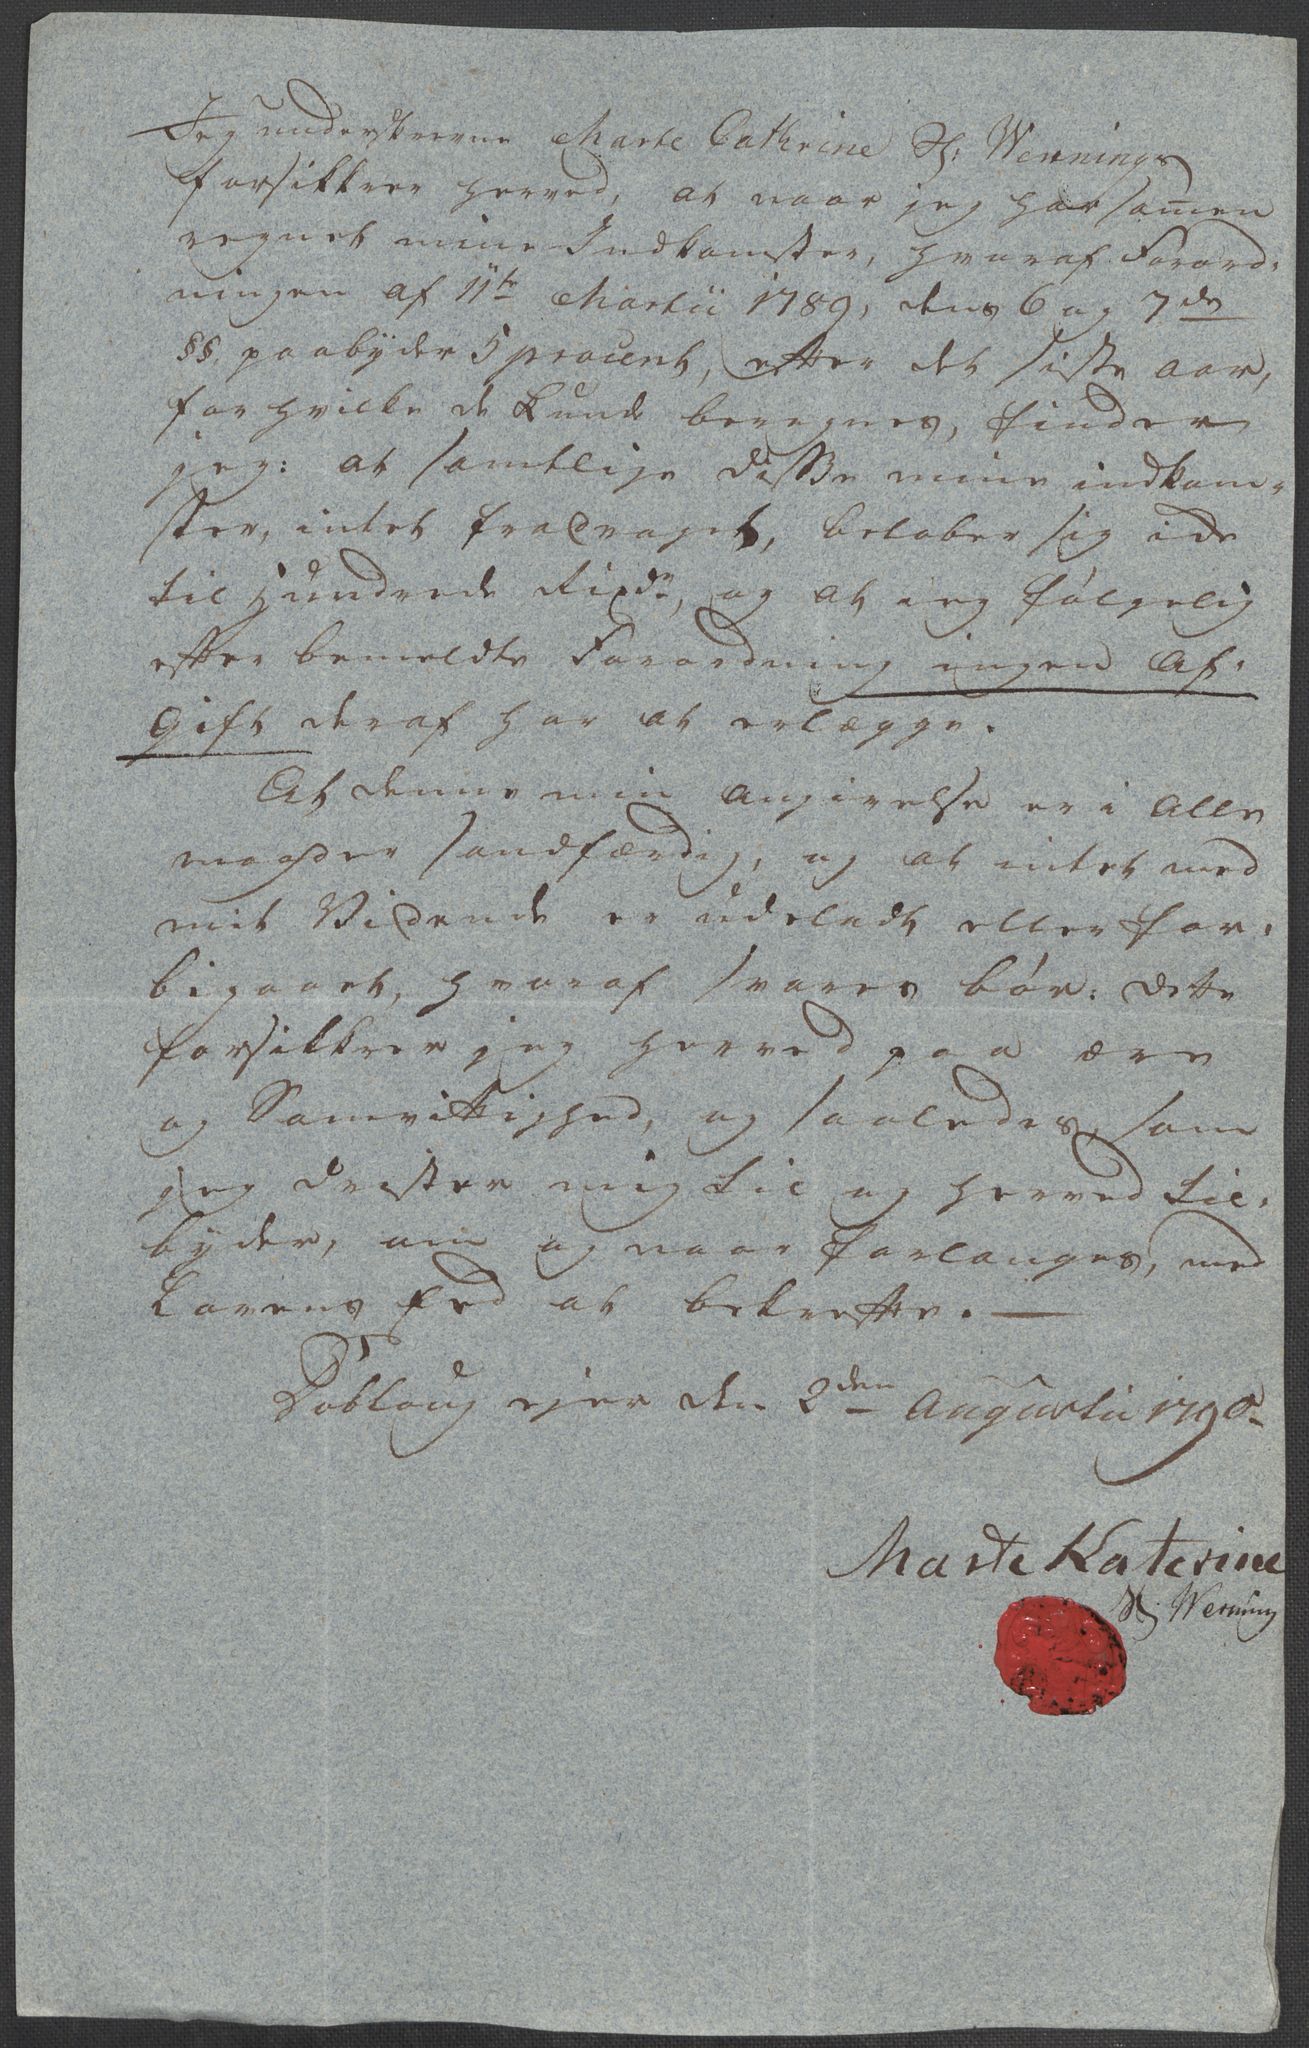 Jeg underskrevne Marte Cathrine Sl: Wennings
forsikkrer herved, at naar jeg har samen
regnet mine Indkomster, hvoraf Forord-
ningen af 11te Martii 1789, dens 6 og 7de
§§. paabyder 5 procent, efter det siste aar,
for hvilke de kunde beregnes, finder
jeg: at samtlige disse mine indkom-
ster, intet fradraget, beløber sig ide
til Hundrede Rixdr, og at ieg følgelig
efter bemeldte Forordning ingen Af-
gift deraf har at erlægge.
At denne min angivelse er i alle
maader sandfærdig, og at intet med
mit Vidende er udeladt eller for-
bigaaet, hvoraf svares bør: dette
forsikkrer jeg herved paa ære
og Samvittighed, og saaledes, som
jeg drister mig til og herved til-
byder, om og naar forlanges, med
Lovens Eed at bekræfte.
Dobloug ejer den 2den Augustii 1790
Marte Katerine
Sl: Wening